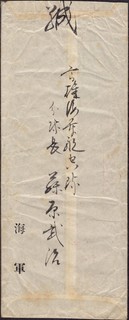 緘
高雄海軍航空隊
分隊長 藤原武治
海軍